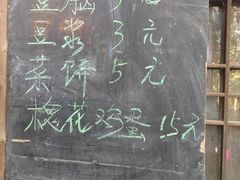 豆脑 3元
豆浆 3元
菜饼 5元
槐花鸡蛋 15元